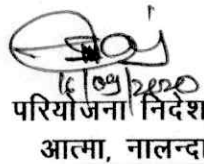 16/09/2020
परियोजना निदेश
आत्मा, नालन्दा